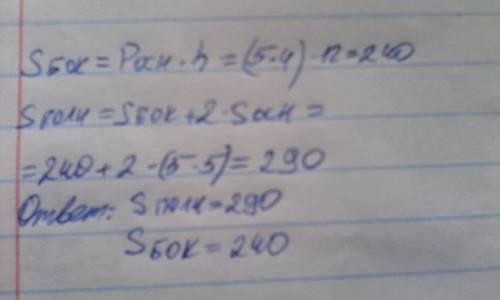 Sбок = Pосн · h = (5·4) · 12 = 240
Sполн = Sбок + 2 · Sосн =
= 240 + 2 · (5·5) = 290
Ответ: Sполн = 290
Sбок = 240